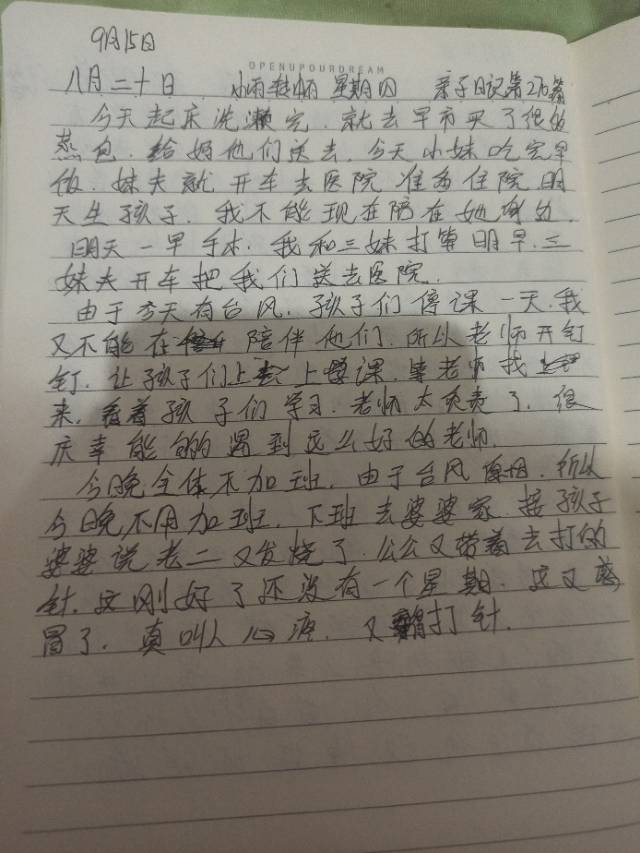 9月15日
OPENUPOURDREAM
八月二十日 小雨转晴 星期四 亲子日记第276篇
今天起床洗濑完，就去早市买了很的
蒸包，给妈他们送去，今天小妹吃完早
饭，妹夫就开车去医院准备住院明
天生孩子，我不能现在陪在她身边，
明天一早手术，我和三妹打算明早，三
妹夫开车把我们送去医院，
由于今天有台风，孩子们停课一天，我
又不能在陪伴他们，所以老师开钉
钉，让孩子们上上课，老师找
来，看着孩子们学习，老师太负责了，很
庆幸能的遇到这么好的老师，
今晚全体不加班，由于台风，所以
今晚不用加班，下班去婆婆家，接孩子
婆婆说老二又发烧了，公公又带着去打的
针，这刚好了还没有一个星期，这又感
冒了，真叫人心疼，又打针，